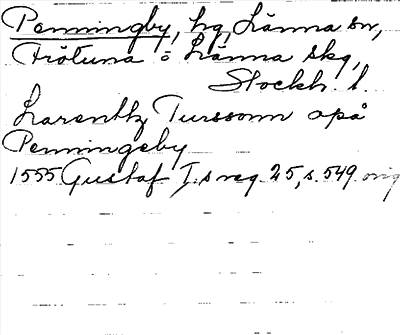 Penningby, hg, Länna sn,
Frötuna o Länna skg,
Stockh. l.
Larenttz Turssonn opå
Penningeby
1555 Gustaf I.s reg. 25, s. 549 orig